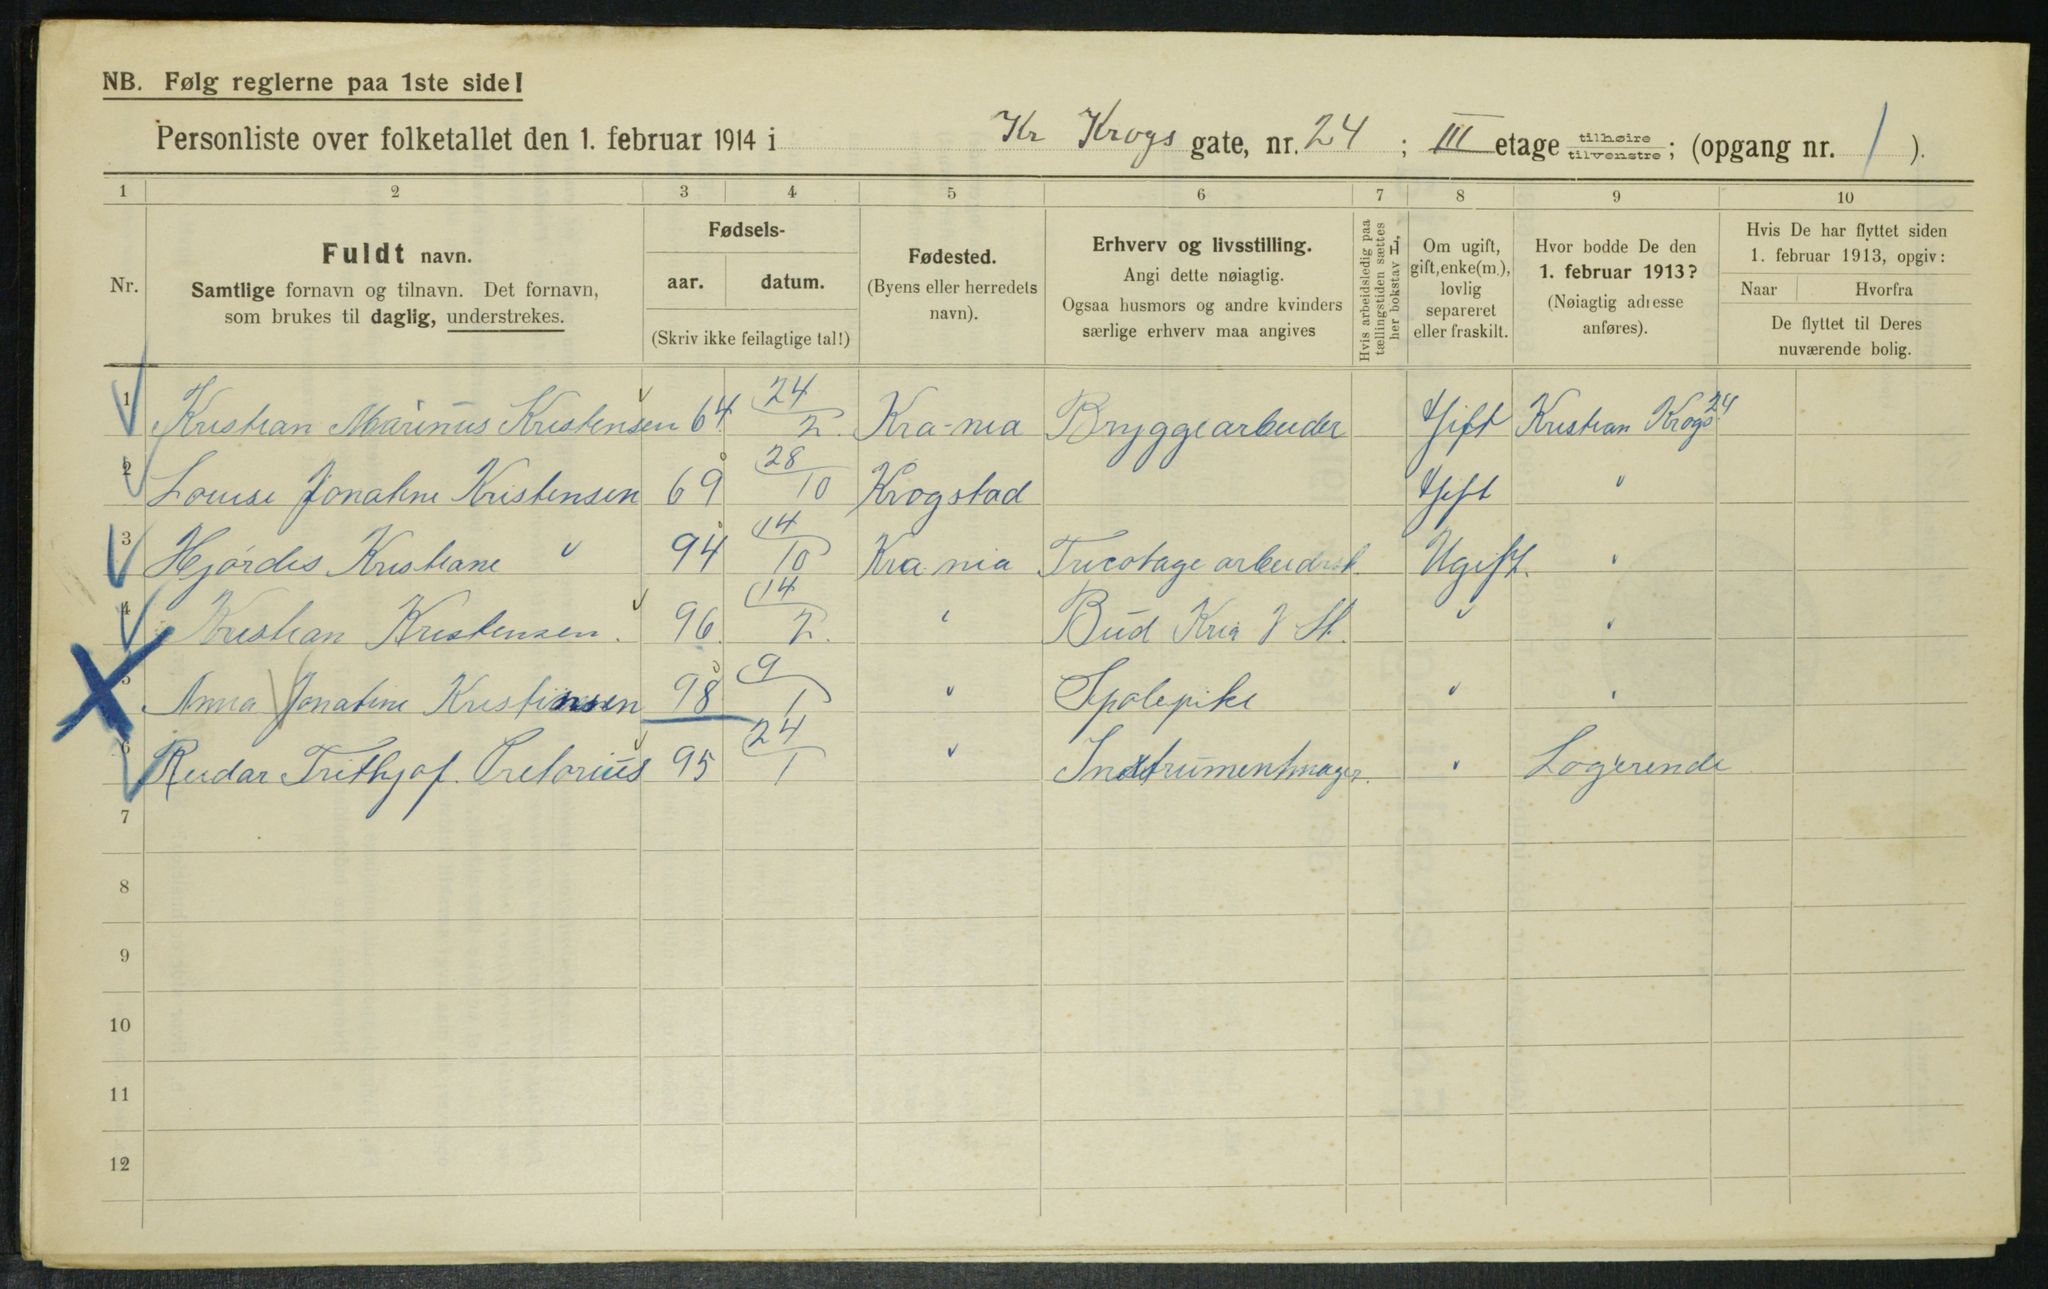 NB. Følg reglerne paa 1ste side!
Personliste over folketallet den 1. februar 1914 i Kr Krogs gate, nr. 24 ; III etage tilhøire tilvenstre ; (opgang nr. 1 ).
1 2 3 4 5 6 7 8 9 10
Nr.
Fuldt navn.
Samtlige fornavn og tilnavn. Det fornavn,
som brukes til daglig, understrekes.
Fødsels-
aar. datum.
(Skriv ikke feilagtige tal!)
Fødested.
(Byens eller herredets
navn).
Erhverv og livsstilling.
Angi dette nøiagtig.
Ogsaa husmors og andre kvinders
særlige erhverv maa angives
Hvis arbeidsledig paa
tællingstiden sættes
her bokstav L.
Om ugift,
gift, enke(m.),
lovlig
separeret
eller fraskilt.
Hvor bodde De den
1. februar 1913?
(Nøiagtig adresse
anføres).
Hvis De har flyttet siden
1. februar 1913, opgiv:
Naar Hvorfra
De flyttet til Deres
nuværende bolig.
1 Kristian Marinus Kristensen 64 24/2. Kra-nia Bryggearbeider Gift Kristian Krogs 24
2 Louise Jonatine Kristensen 69 28/10 Krogstad Gift "
3 Hjørdis Kristiane " 94 14/10 Kra nia Tricotage arbeidrsk. Ugift. "
4 Kristian Kristensen. 96. 14/2. " Bud Kria V St. " "
5 Anna Jonatine Kristinsen 98 9/1 " Spolepike " "
6 Reidar Trithjof. Pretorius 95 24/1 " Instrumentmager. " Logerende
7
8
9
10
11
12